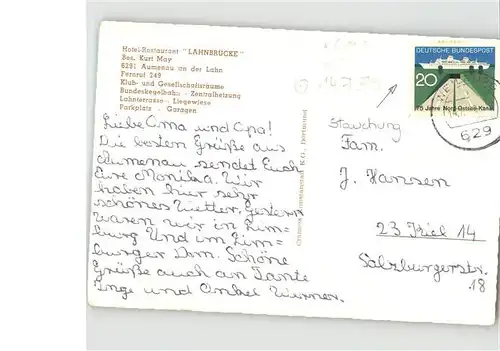 Hotel-Restaurant "LAHNBRÜCKE"
Bes. Kurt May
6291 Aumenau an der Lahn
Fernruf 249
Klub- und Gesellschaftsräume
Bundeskegelbahn - Zentralheizung
Lahnterrasse - Liegewiese
Parkplatz - Garagen
Liebe Oma und Opa!
Die besten Grüße aus
Aumenau sendet Euch
Eure Monika. Wir
haben hier sehr
schönes Wetter. Gestern
waren wir in Lim-
burg Und im Lim-
burger Dom. Schöne
Grüße auch an Tante
Inge und Onkel Werner.
Cramers Kunstanstalt KG., Dortmund
DEUTSCHE BUNDESPOST
20
75 Jahre Nord-Ostsee-Kanal
629
Stauchung
Fam.
J. Hansen
23 Kiel 14
Salzburgerstr.
18